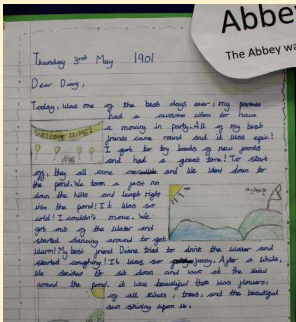 Abbe
The Abbey wa
Thursday 3rd May 1901
Dear Diary,
Today, was one of the best days ever; my parents
had a awsome idea to have
a moving in party. All of my best
WELCOME HOME!
friends came round and it was epic!
I got to try loads of new foods
and had a great time! To start
off, they all came and we went down to
the pond. We took a just run
down the hills and leaph right
into the pond! It was so
cold! I couldn't move. We
got out of the water and
started dancing around to get
warm! My best friend Diana tried to drink the water and
started coughing! It was so funny. After a while,
we decided to sit down and look at the view
around the pond. it was beautiful that was flowers,
of all kinds, trees, and the beautiful
sun shining upon us.